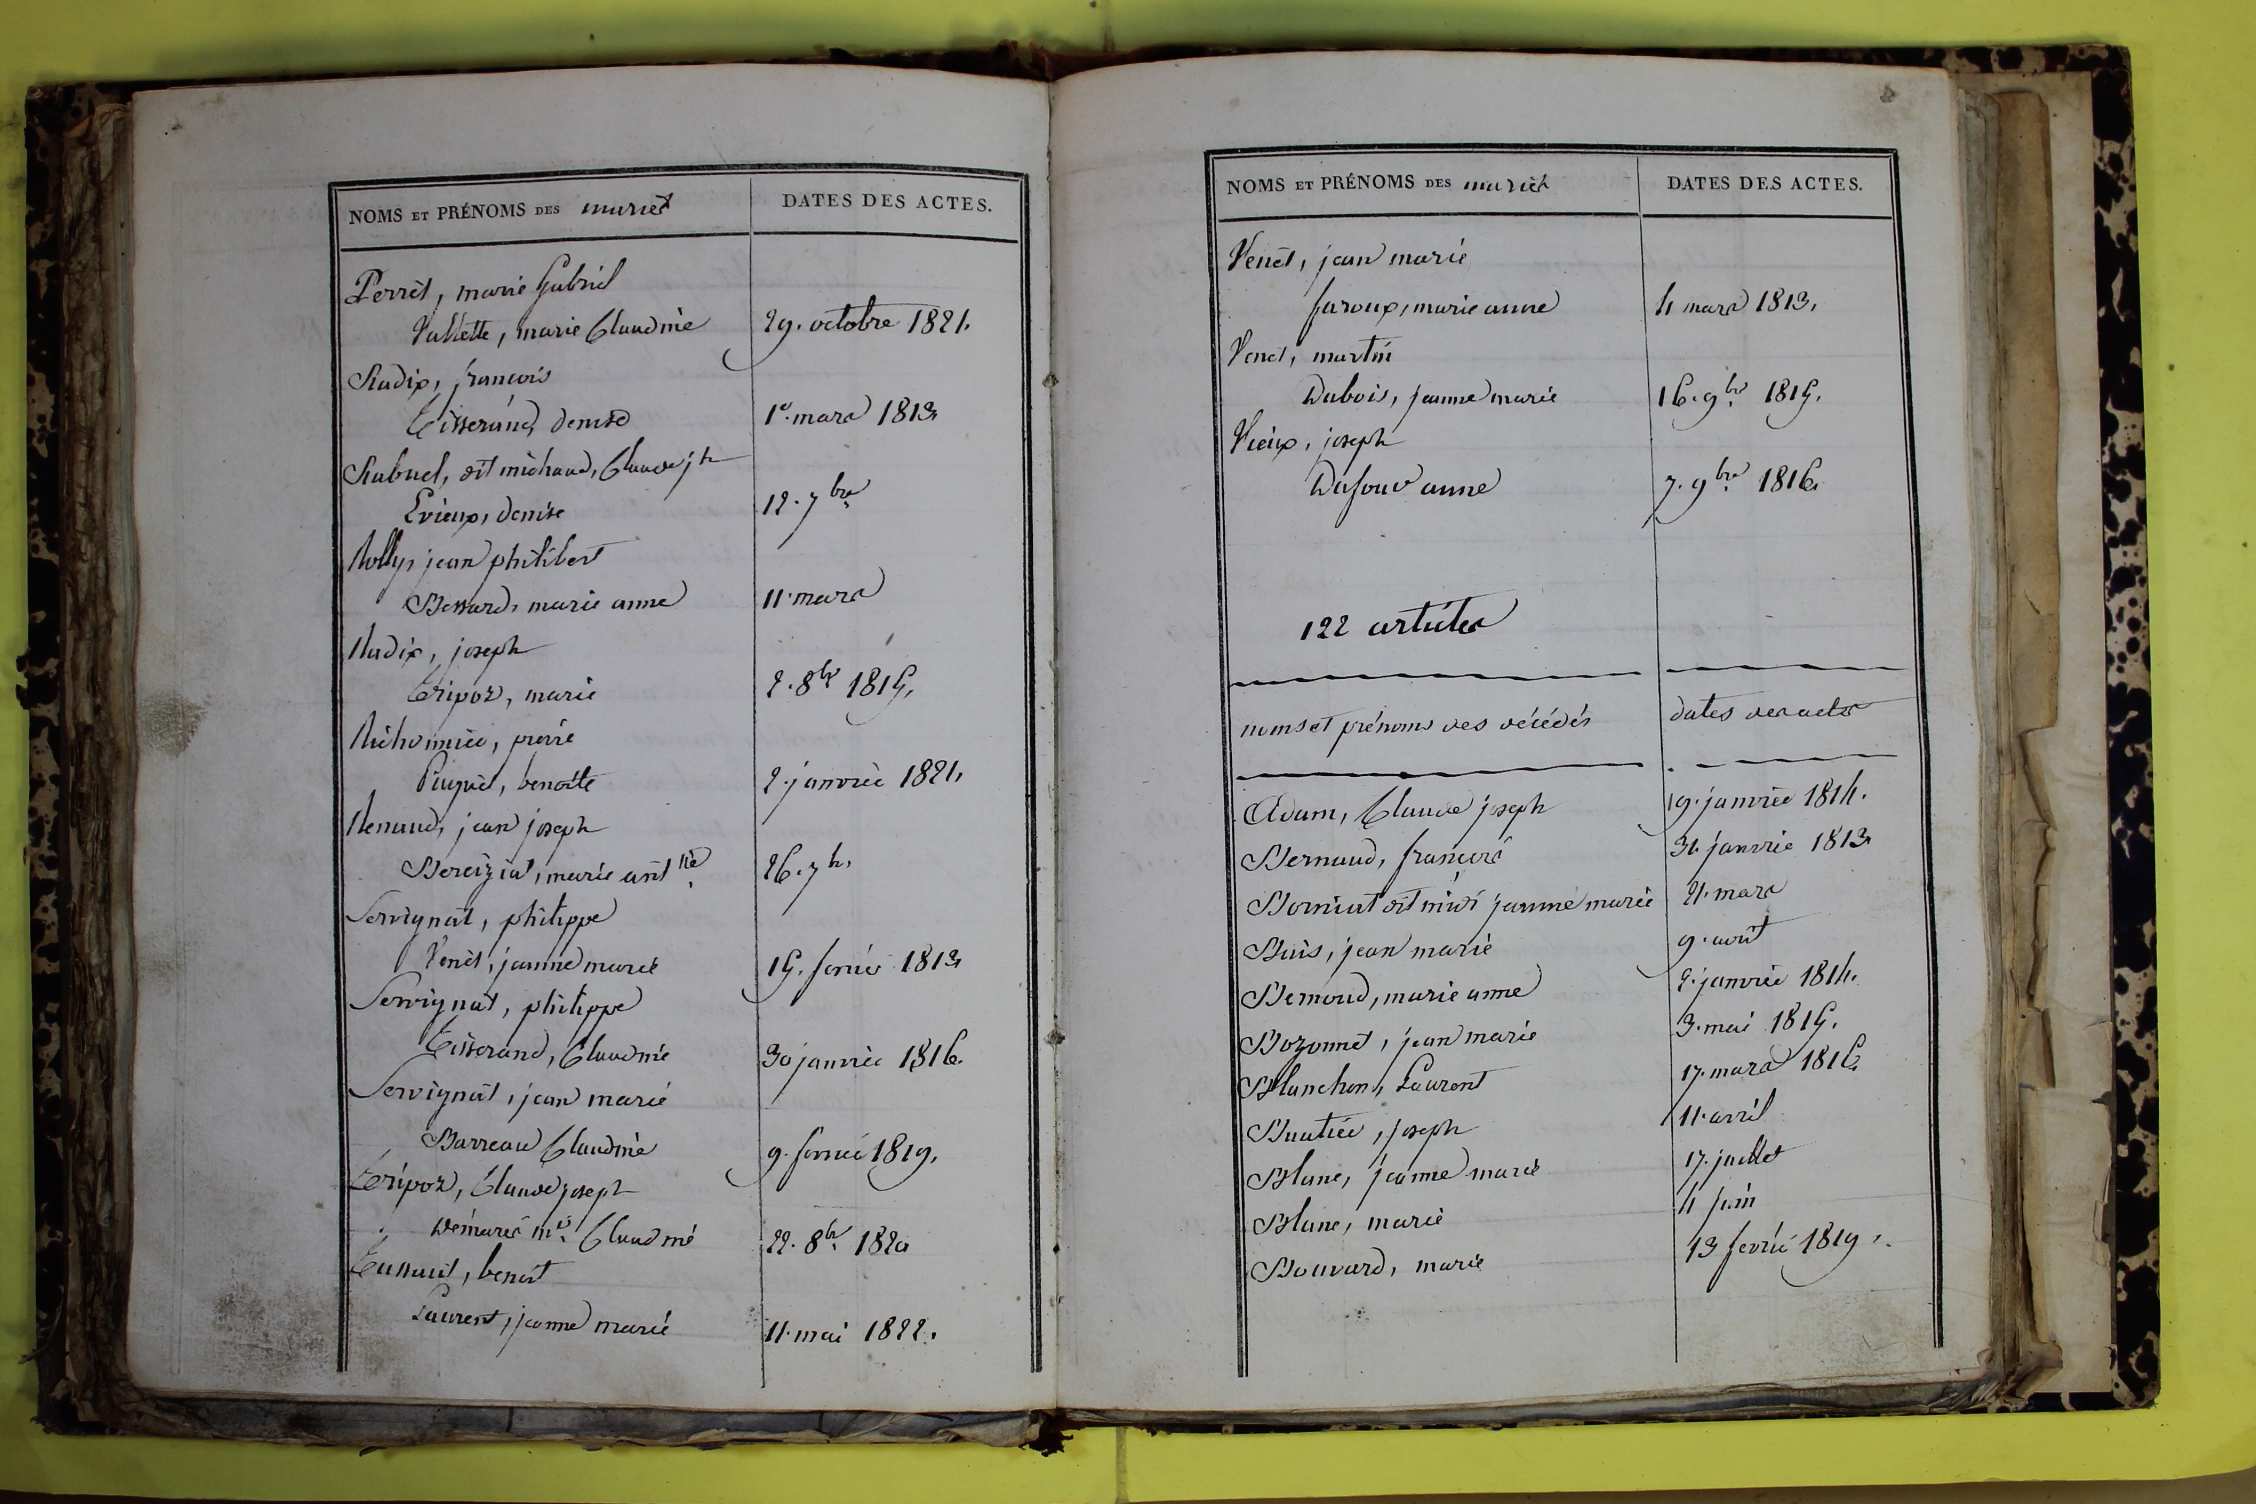 NOMS ET PRÉNOMS DES mariés DATES DES ACTES.
Perret, marie Gabriel
Vallette, marie Claudine 29. octobre 1821.
Radix, françois
Tisserand, denise 1er. mars 1813
Rabuel, dit michaud, Claude jh
Evieux, denise 12. 7bre
Rolly, jean philibert
Bessard, marie anne 11. mars
Radix, joseph
Tripoz, marie 2. 8bre 1815.
pierre
benoite 2. janvier 1821.
Renaud, jean joseph
Bereiziat, marie antnte 26. 7b.
Servignat, philippe
Venet, jeanne marie 15. fevrier 1813
Servignat, philippe
Tisserand, Claudine 30 janvier 1816.
Servignat, jean marie
Barreau Claudine 9. fevrier 1819.
Tripoz, Claude joseph
Demares me. Claudine 22. 8bre 1820
benoit
Laurent, jeanne marie 11. mai 1822.
NOMS ET PRÉNOMS DES mariés DATES DES ACTES.
Venet, jean marie
faroux, marie anne 4 mars 1813.
Venet, martin
Dubois, jeanne marie 16. 9bre 1815.
Vieux, joseph
Dufour anne 7. 9bre 1816.
122 articles
noms et prénoms des décédés dates des actes
Adam, Claude joseph 19. janvier 1814.
Bernaud, françois 31. janvier 1813
Borniat dit midi jeanne marie 21. mars
Buis, jean marie 9. avril
Bernoud, marie anne 2. janvier 1814.
Bozonnet, jean marie 3. mai 1815.
Blanchon, Laurent 17. mars 1816.
Buatier, joseph 11. avril
Blanc, jeanne marie 17. juillet
Blanc, marie 4 juin
Bouvard, marie 13 fevrier 1819.